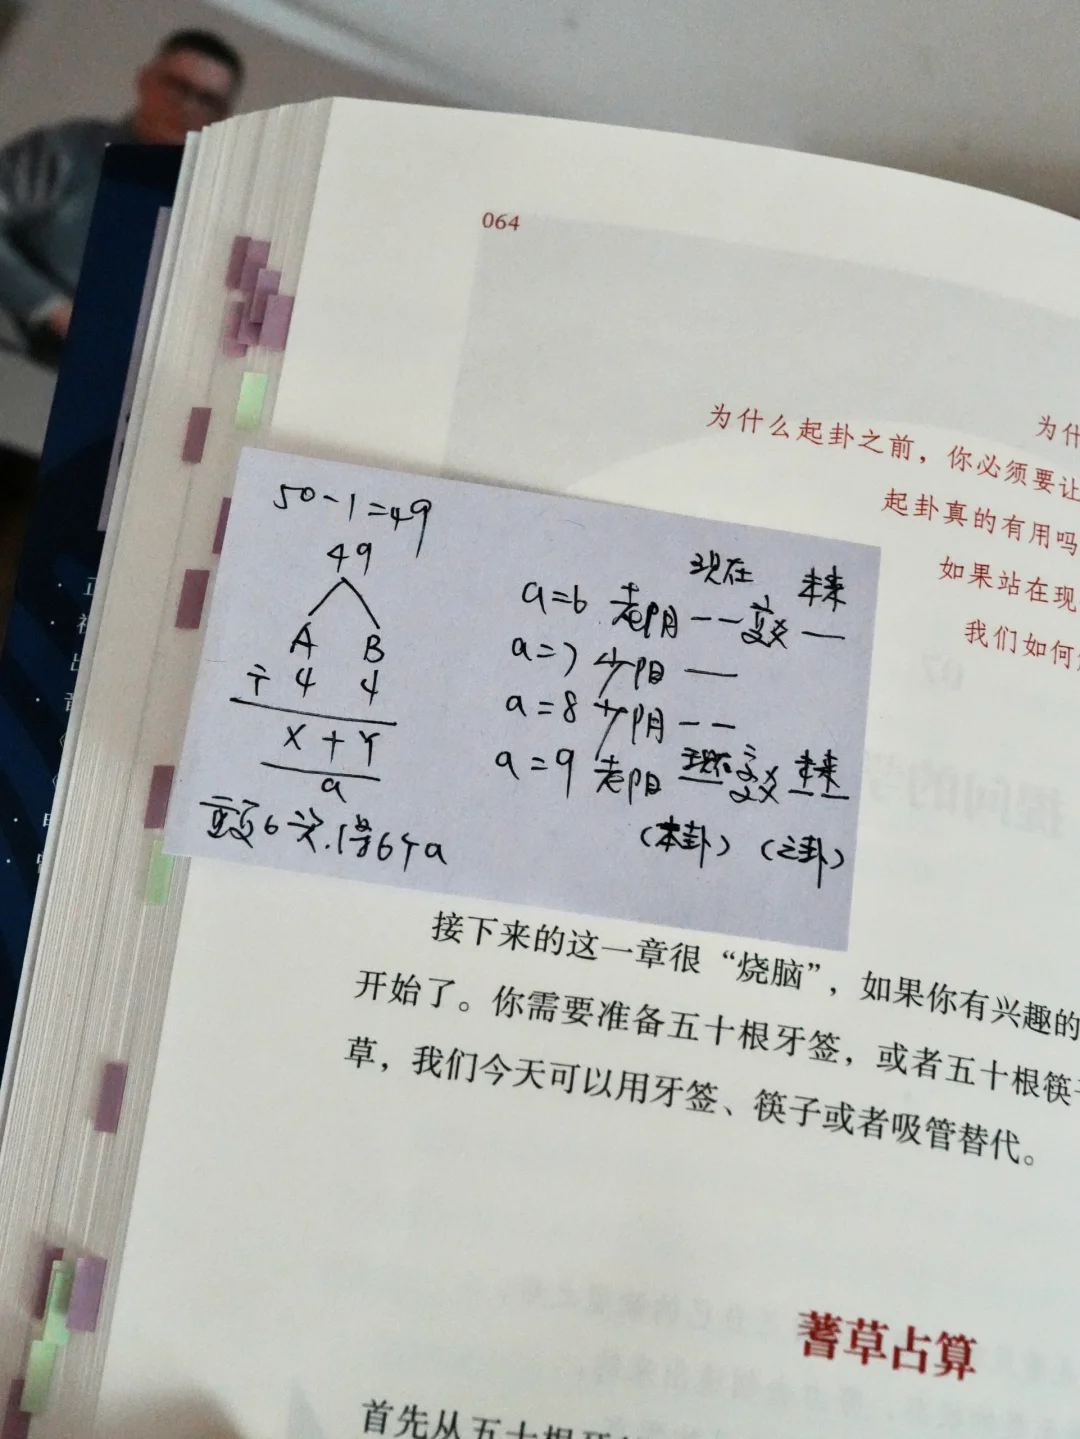 064
为什
为什么起卦之前，你必须要让
起卦真的有用吗
如果站在现
我们如何
50-1=49
49
A B
÷ 4 4
X + Y
a
重复6次，得6个a
现在 未来
a=6 老阴 -- 变爻 —
a=7 少阳 —
a=8 少阴 --
a=9 老阳 现在 变爻 未来
(本卦) (之卦)
接下来的这一章很“烧脑”，如果你有兴趣的
开始了。你需要准备五十根牙签，或者五十根筷子
草，我们今天可以用牙签、筷子或者吸管替代。
蓍草占算
首先从五十根牙